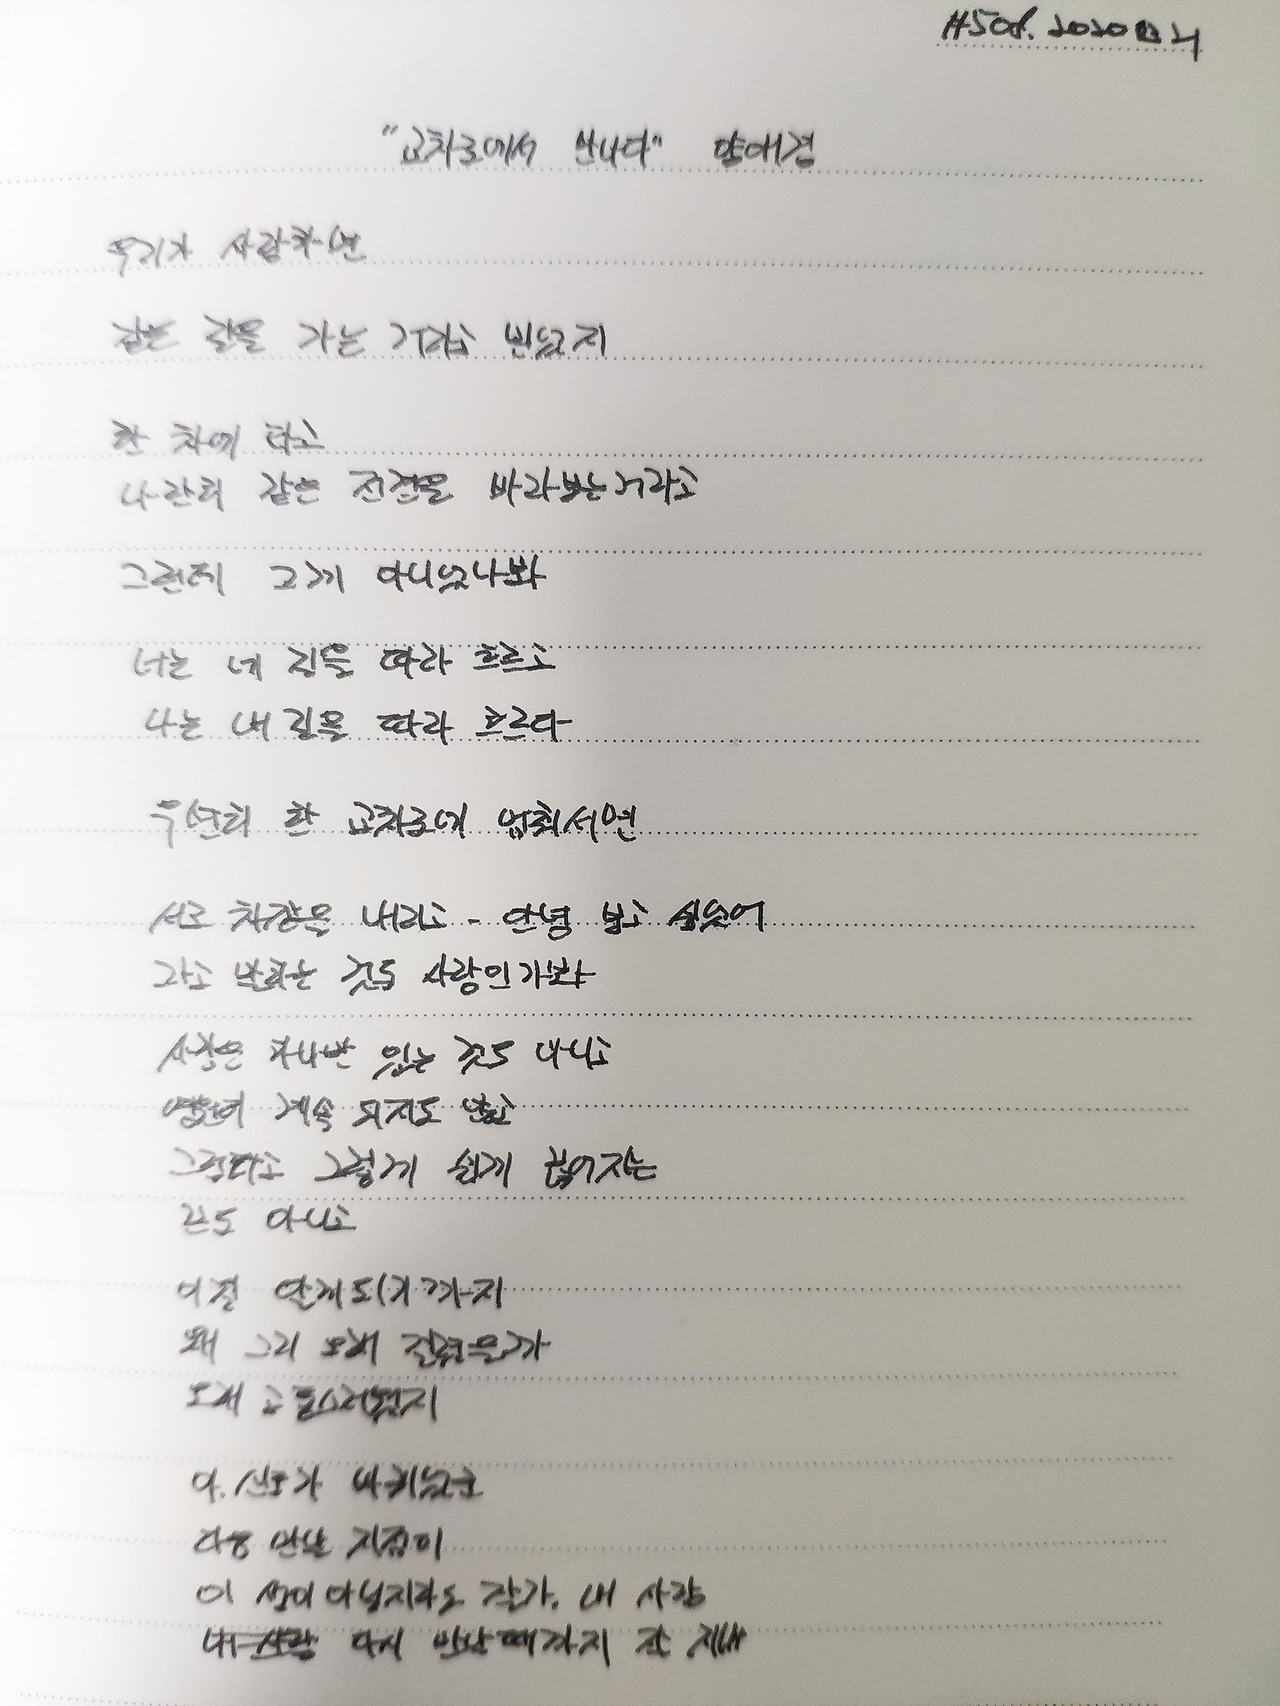 #508. 2020
"교차로에서 만나다" 양애경
우리가 사랑하면
같은 길을 가는 거라고 믿었지
한 차에 타고
나란히 같은 전경을 바라보는거라고
그런데 그게 아니었나봐
너는 네 길을 따라 흐르고
나는 내 길을 따라 흐르다
우연히 한 교차로에 멈춰서면
서로 차창을 내리고 - 안녕 보고 싶었어
라고 말하는 것도 사랑인가봐
사랑은 하나만 있는 것도 아니고
영원히 계속 되지도 않고
그렇다고 그렇게 쉽게 끊어지는
끈도 아니고
이걸 알게되기까지
왜 그리 오래 걸렸을까
오래 고통스러웠지
아, 신호가 바뀌었군
다음 만날 지점이
이 생이 아닐지라도 잘가, 내 사랑
다시 만날때까지 잘 지내